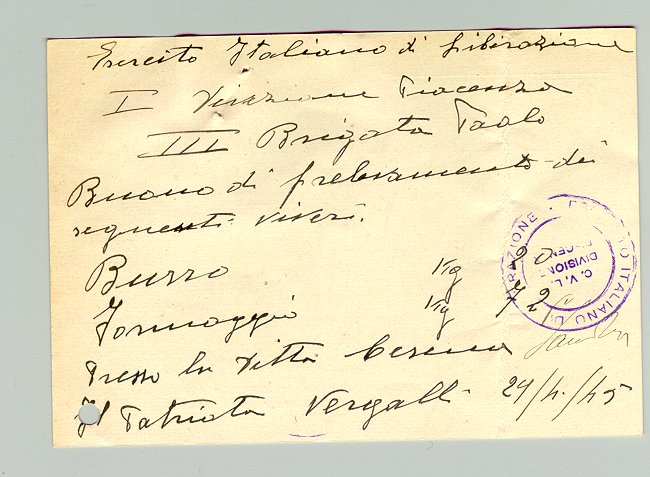 Esercito Italiano di Liberazione
I Divisione Piacenza
III Brigata Paolo
Buono di prelevamento dei
seguenti viveri.
Burro Kg 20
Formaggio Kg 72
Presso la Ditta Cesena
Il Patriota Vergalli 29/4/45
ESERCITO ITALIANO DI LIBERAZIONE
C. V. L.
DIVISIONE
PIACENZA